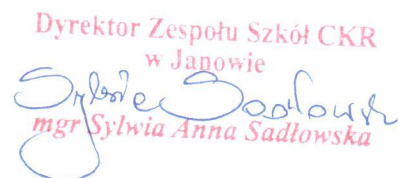 Dyrektor Zespołu Szkół CKR
w Janowie
Sylwia Sadłowska
mgr Sylwia Anna Sadłowska